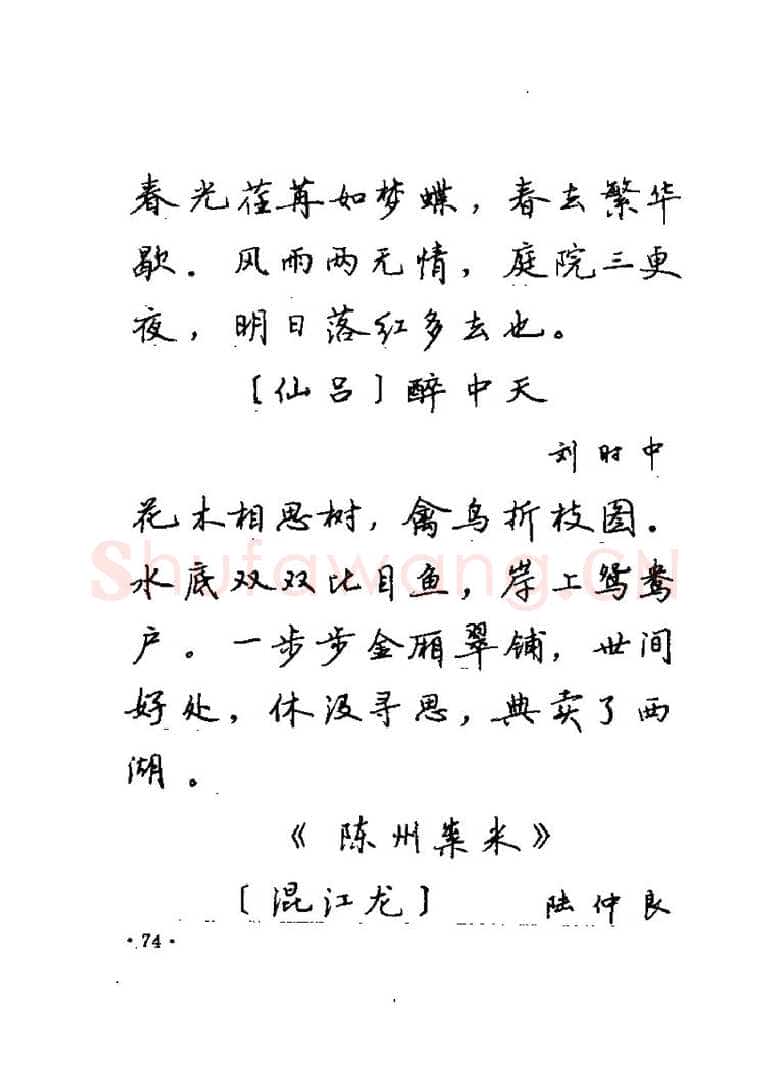 春光荏苒如梦蝶，春去繁华
歇．风雨两无情，庭院三更
夜，明日落红多去也。
〔仙吕〕醉中天
刘时中
花木相思树，禽鸟折枝图．
水底双双比目鱼，岸上鸳鸯
户。一步步金厢翠铺，世间
好处，休没寻思，典卖了西
湖。
《陈州粜米》
〔混江龙〕 陆仲良
·74·
Shufawang.CN